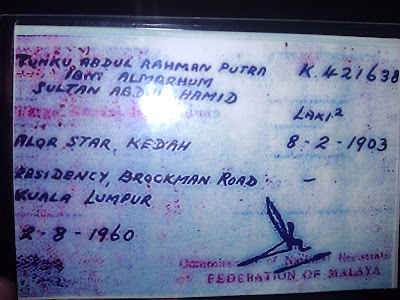 TUNKU ABDUL RAHMAN PUTRA K.421638
IBNI ALMARHUM
SULTAN ABDUL HAMID
LAKI²
ALOR STAR, KEDAH 8-2-1903
RESIDENCY, BROCKMAN ROAD -
KUALA LUMPUR
2-8-1960
of National Registration
FEDERATION OF MALAYA